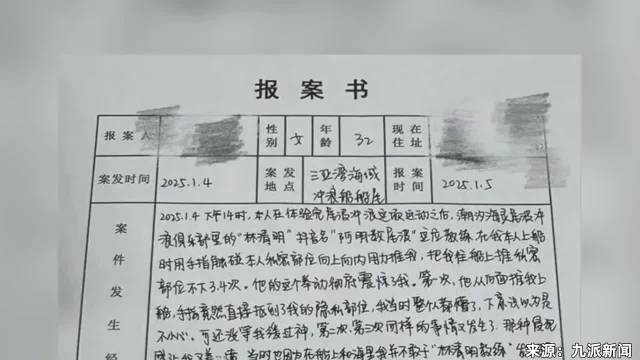 报案书
报案人 性别 女 年龄 32 现在住址
案发时间 2025.1.4 案发地点 三亚湾海域冲浪船船尾 报案时间 2025.1.5
案件发生经
2025.1.4下午14时,本人在体验完尾浪冲浪这项运动之后,潮汐海灵尾浪冲
浪俱乐部里的"林清明"抖音名"阿明教尾浪"这位教练,在我本人上船
时用手指触碰本人私密部位向上向内用力推我,把我往船上推私密
部位不下3.4次。他的这个举动彻底震惊了我。第一次,他从后面推我上
船,手指竟然直接抵到了我的隐私部位,我当时整个人都懵了,下意识以为是
不小心。可还没等我缓过神,第二次、第三次同样的事情又发生了。那种
当时也因为在船上和海里我并不敢于"林清明教练"
来源:九派新闻